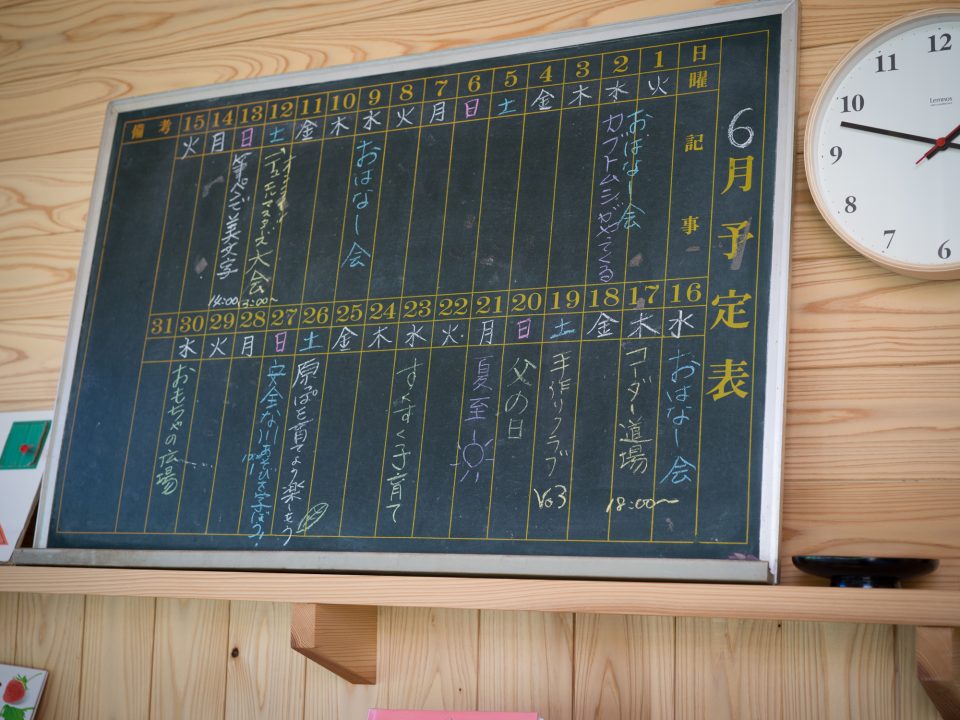 6月予定表
日曜 記事
1 火
2 水 おはなし会
カブトムシがやってくる
3 木
4 金
5 土
6 日
7 月
8 火
9 水 おはなし会
10 木
11 金
12 土
デュエルマスターズ大会
13:00~
13 日 筆ペンで美文字
14:00
14 月
15 火
備考
16 水 おはなし会
17 木 コーダー道場
18:00~
18 金
19 土 手作りクラブ
Vo3
20 日 父の日
21 月 夏至
22 火
23 水 すくすく子育て
24 木
25 金
26 土 原っぱを育てよう楽しもう
27 日 安全な川あそびを学ぼう!
28 月
29 火
30 水 おもちゃの広場
31
12
11
10
9
8
7
6
Lemnos